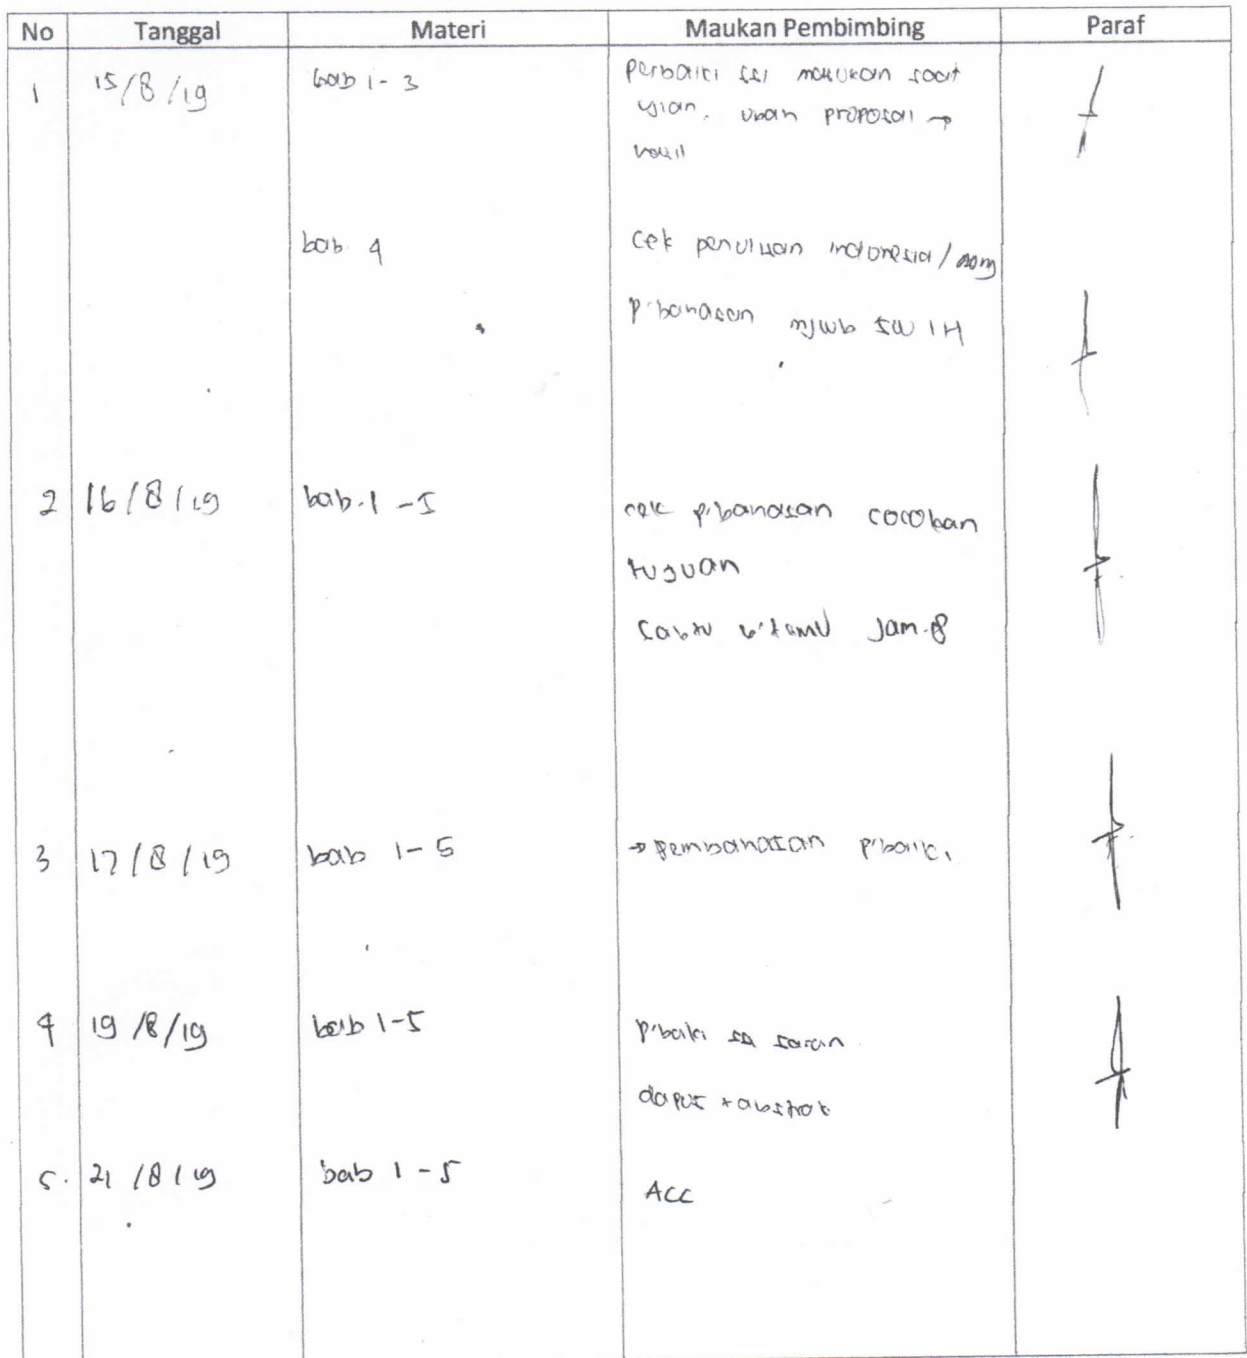 No Tanggal Materi Maukan Pembimbing Paraf
1 15/8/19 bab 1-3 perbaiki ssi masukan saat
ujian, ubah proposal →
hasil
bab 4 Cek penulisan indonesia/
p'bahasan mjwb
2 16/8/19 bab.1-5 cek p'bahasan cocokan
tujuan
Sabtu b'temu Jam.8
3 17/8/19 bab 1-5 → pembahasan p'baiki.
4 19/8/19 bab 1-5 p'baiki saran
dapus + abstrak
5. 21/8/19 bab 1-5 ACC